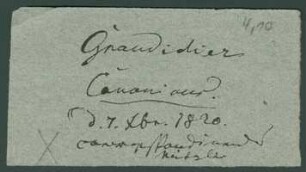 4,10
Grandidier
Canonicus.
d. 7. Xbr. 1820.
correspondirender